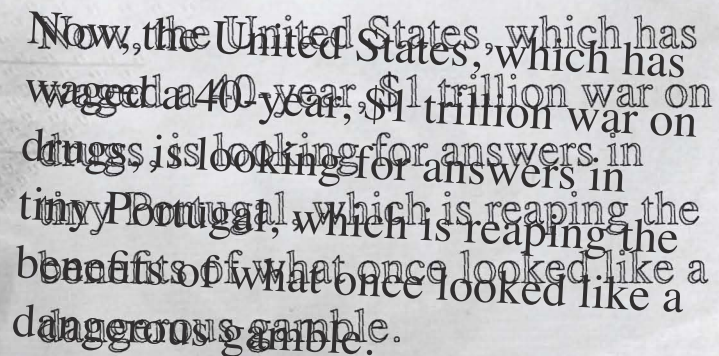 Now, the United States, which has
waged a 40-year, $1 trillion war on
drugs, is looking for answers in
tiny Portugal, which is reaping the
benefits of what once looked like a
dangerous gamble.